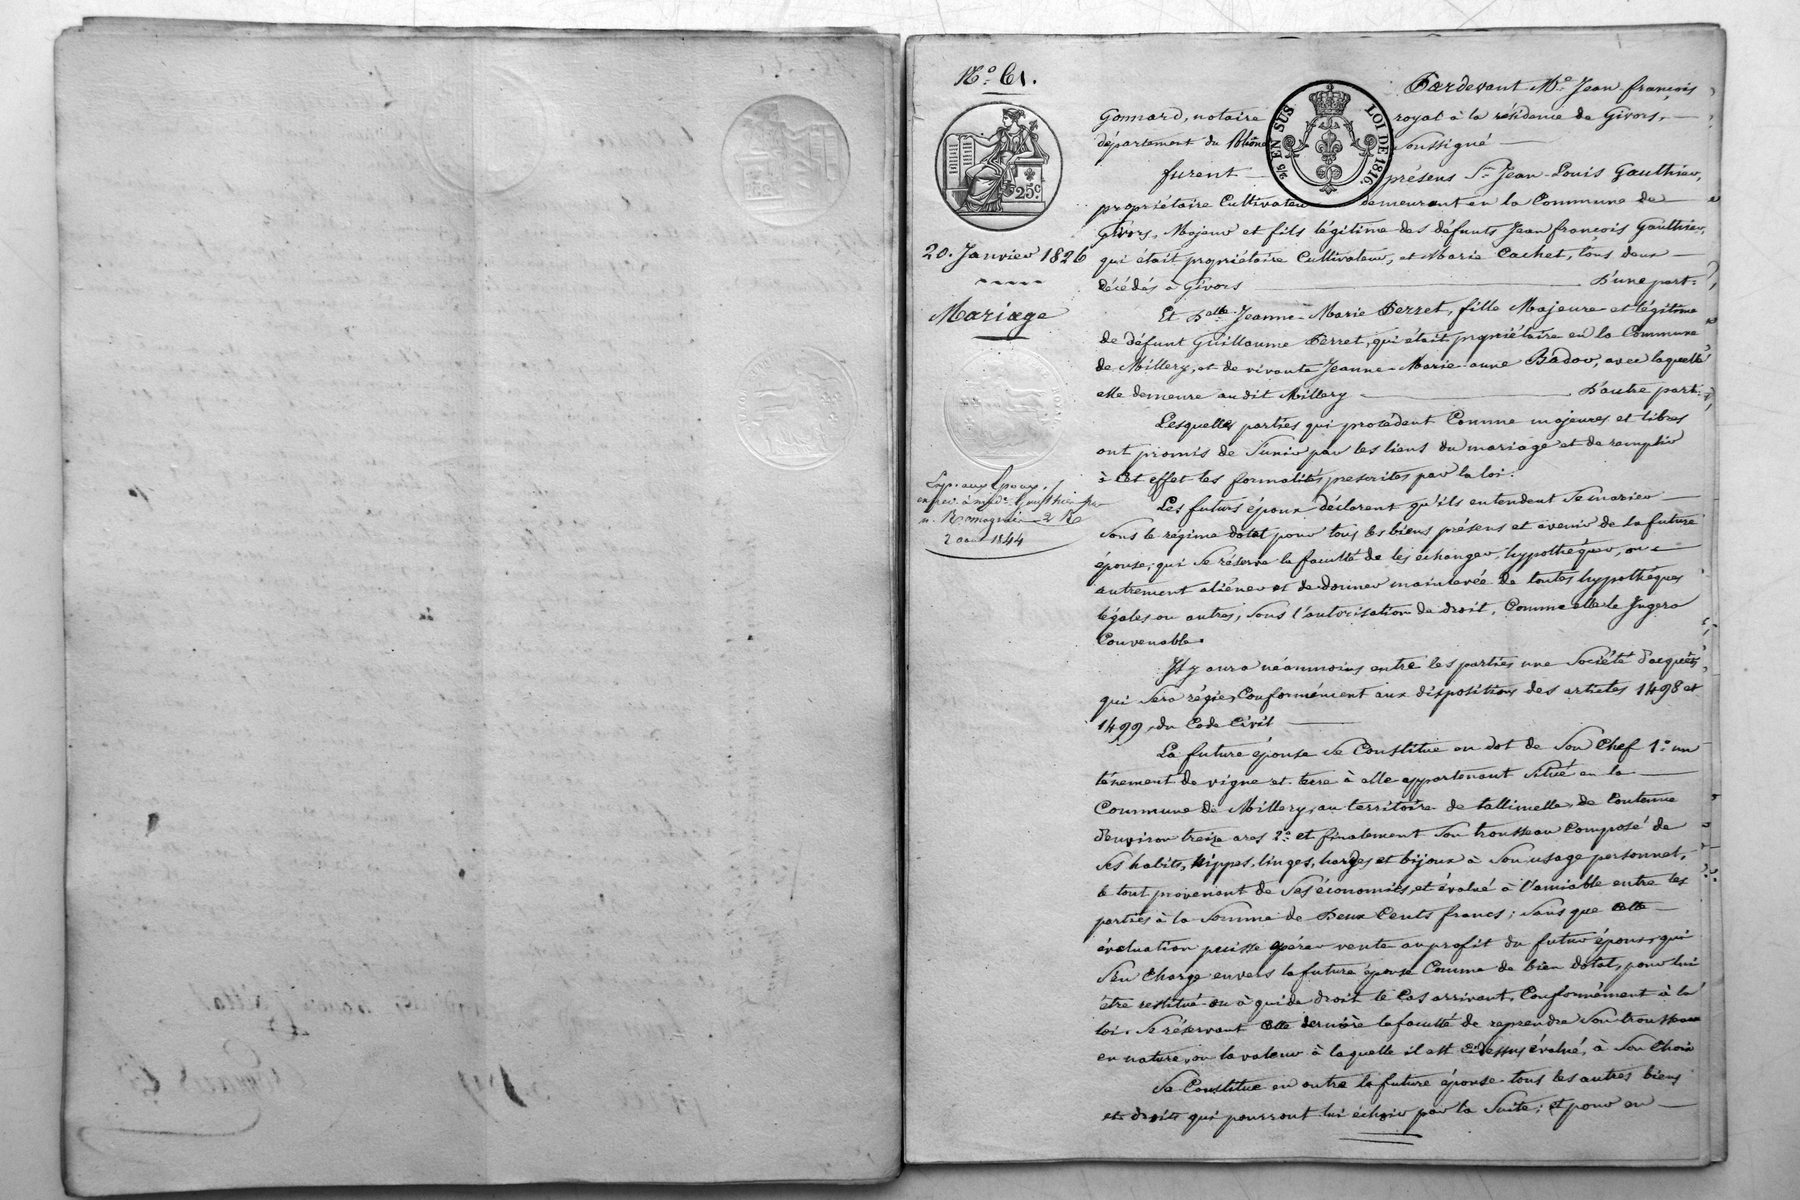 N.o 61.
25c.
20. Janvier 1826
Mariage
2 aout 1844
2/5 EN SUS LOI DE 1816.
Pardevant Me. Jean françois
Gonnard, notaire royal à la résidence de Givors,
département du Rhône soussigné
furent présens Sr. Jean-Louis Gauthier,
propriétaire Cultivateur demeurant en la Commune de
Givors, Majeur et fils légitime des défunts Jean françois Gauthier,
qui était propriétaire Cultivateur, et Marie Cachet, tous deux
décédés à Givors D'une part.
Et Delle. Jeanne-Marie Perret, fille Majeure et légitime
de défunt Guillaume Perret, qui était propriétaire en la Commune
de Millery, et de vivante Jeanne-Marie-anne Badou, avec laquelle
elle demeure au dit Millery D'autre part.
Lesquelles parties qui procedent Comme majeures et libres
ont promis de S'unir par les liens du mariage et de remplir
à cet effet les formalités prescrites par la loi.
Les futurs époux déclarent qu'ils entendent se marier
Sous le régime dotal pour tous les biens présens et avenir de la future
épouse, qui se réserve la faculté de les échanger, hypothéquer, ou
autrement aliéner et de donner mainlevée de toutes hypothèques
légales ou autres, sous l'autorisation de droit, Comme elle le Jugera
Convenable.
Il y aura néanmoins entre les parties une Société d'acquêts,
qui sera régie Conformément aux dispositions des articles 1498 et
1499 du Code Civil
La future épouse se Constitue en dot de Son Chef 1.o un
ténement de vigne et terre à elle appartenant Situé en la
Commune de Millery, au territoire de tallimelle, de Contenue
d'environ treize ares 2.o et finalement Son trousseau Composé de
Ses habits, nippes, linges, hardes et bijoux à Son usage personnel,
le tout provenant de Ses économies, et évalué à l'amiable entre les
parties à la Somme de Deux Cents francs; Sans que cette
évaluation puisse opérer vente au profit du futur époux, qui
S'en Charge envers la future épouse Comme de bien dotal, pour lui
être restitué ou à qui de droit le Cas arrivant, Conformément à la
loi. Se réservant cette dernière la faculté de reprendre Son trousseau
en nature, ou la valeur à laquelle il est Cidessus évalué, à Son Choix
Se Constitue en outre la future épouse tous les autres biens
et droits qui pourront lui échoir par la Suite; et pour en